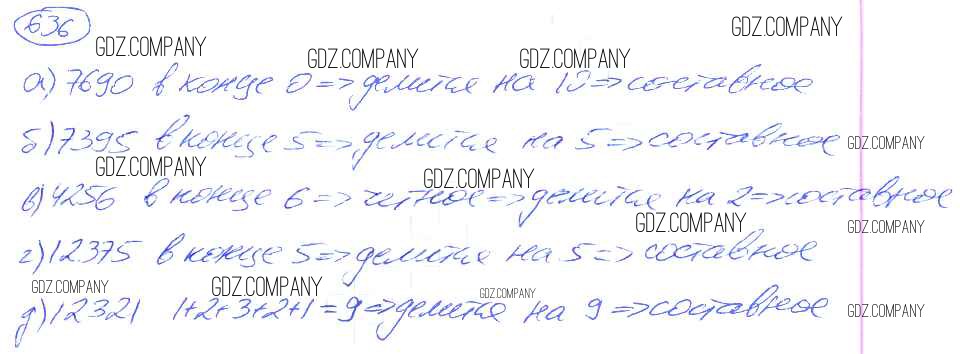 636
GDZ.COMPANY
GDZ.COMPANY GDZ.COMPANY GDZ.COMPANY
а) 7690 в конце 0 => делится на 10 => составное
б) 7395 в конце 5 => делится на 5 => составное GDZ.COMPANY
GDZ.COMPANY GDZ.COMPANY
в) 4256 в конце 6 => четное => делится на 2 => составное
GDZ.COMPANY GDZ.COMPANY
г) 12375 в конце 5 => делится на 5 => составное
GDZ.COMPANY GDZ.COMPANY GDZ.COMPANY
д) 12321 1+2+3+2+1=9 => делится на 9 => составное GDZ.COMPANY